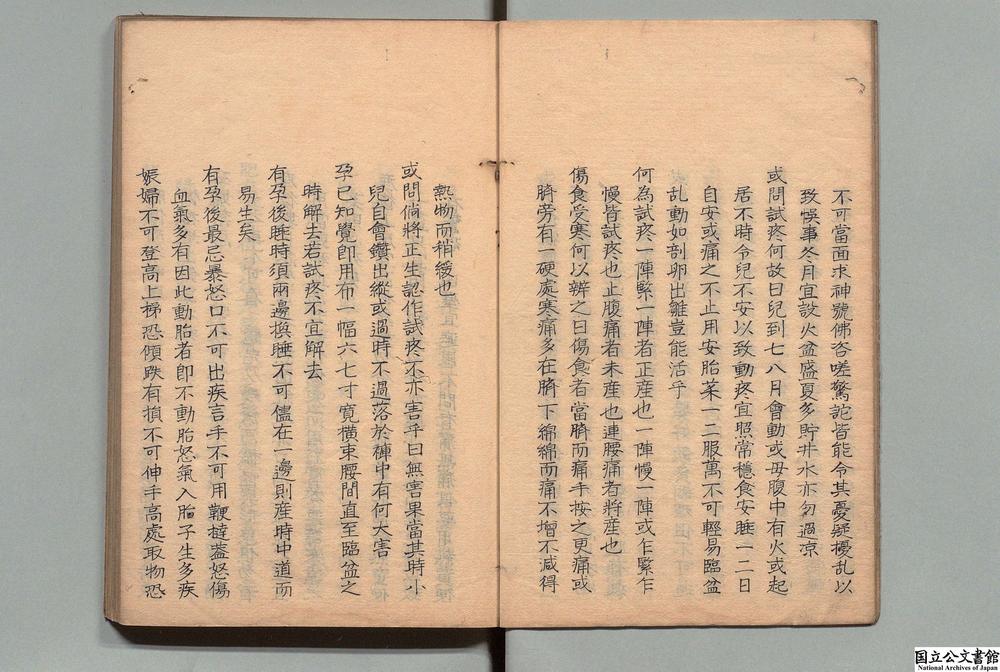 不可當面求神號佛咨嗟驚詫皆能令其憂疑擾亂以
致悞事冬月宜設火盆盛夏多貯井水亦勿過凉
或問試疼何故曰兒到七八月會動或母腹中有火或起
居不時令兒不安以致動疼宜照常穩食安睡一二日
自安或痛之不止用安胎藥一二服萬不可輕易臨盆
乱動如剖卵出雛豈能活乎
何為試疼一陣緊一陣者正産也一陣慢一陣或乍緊乍
慢皆試疼也止腹痛者未産也連腰痛者將産也
傷食受寒何以辨之曰傷食者當臍而痛手按之更痛或
臍旁有一硬處寒痛多在臍下綿綿而痛不增不减得
熱物而稍緩也
或問倘將正生認作試疼不亦害乎曰無害果當其時小
兒自會鑽出縱或過時不過落於褲中有何大害
孕已知覺即用布一幅六七寸寬橫束腰間直至臨盆之
時解去若試疼不宜解去
有孕後睡時須兩邊換睡不可儘在一邊則産時中道而
易生矣
有孕後最忌暴怒口不可出疾言手不可用鞭撻蓋怒傷
血氣多有因此動胎者即不動胎怒氣入胎子生多疾
娠婦不可登高上梯恐傾跌有損不可伸手高處取物恐
国立公文書館
National Archives of Japan